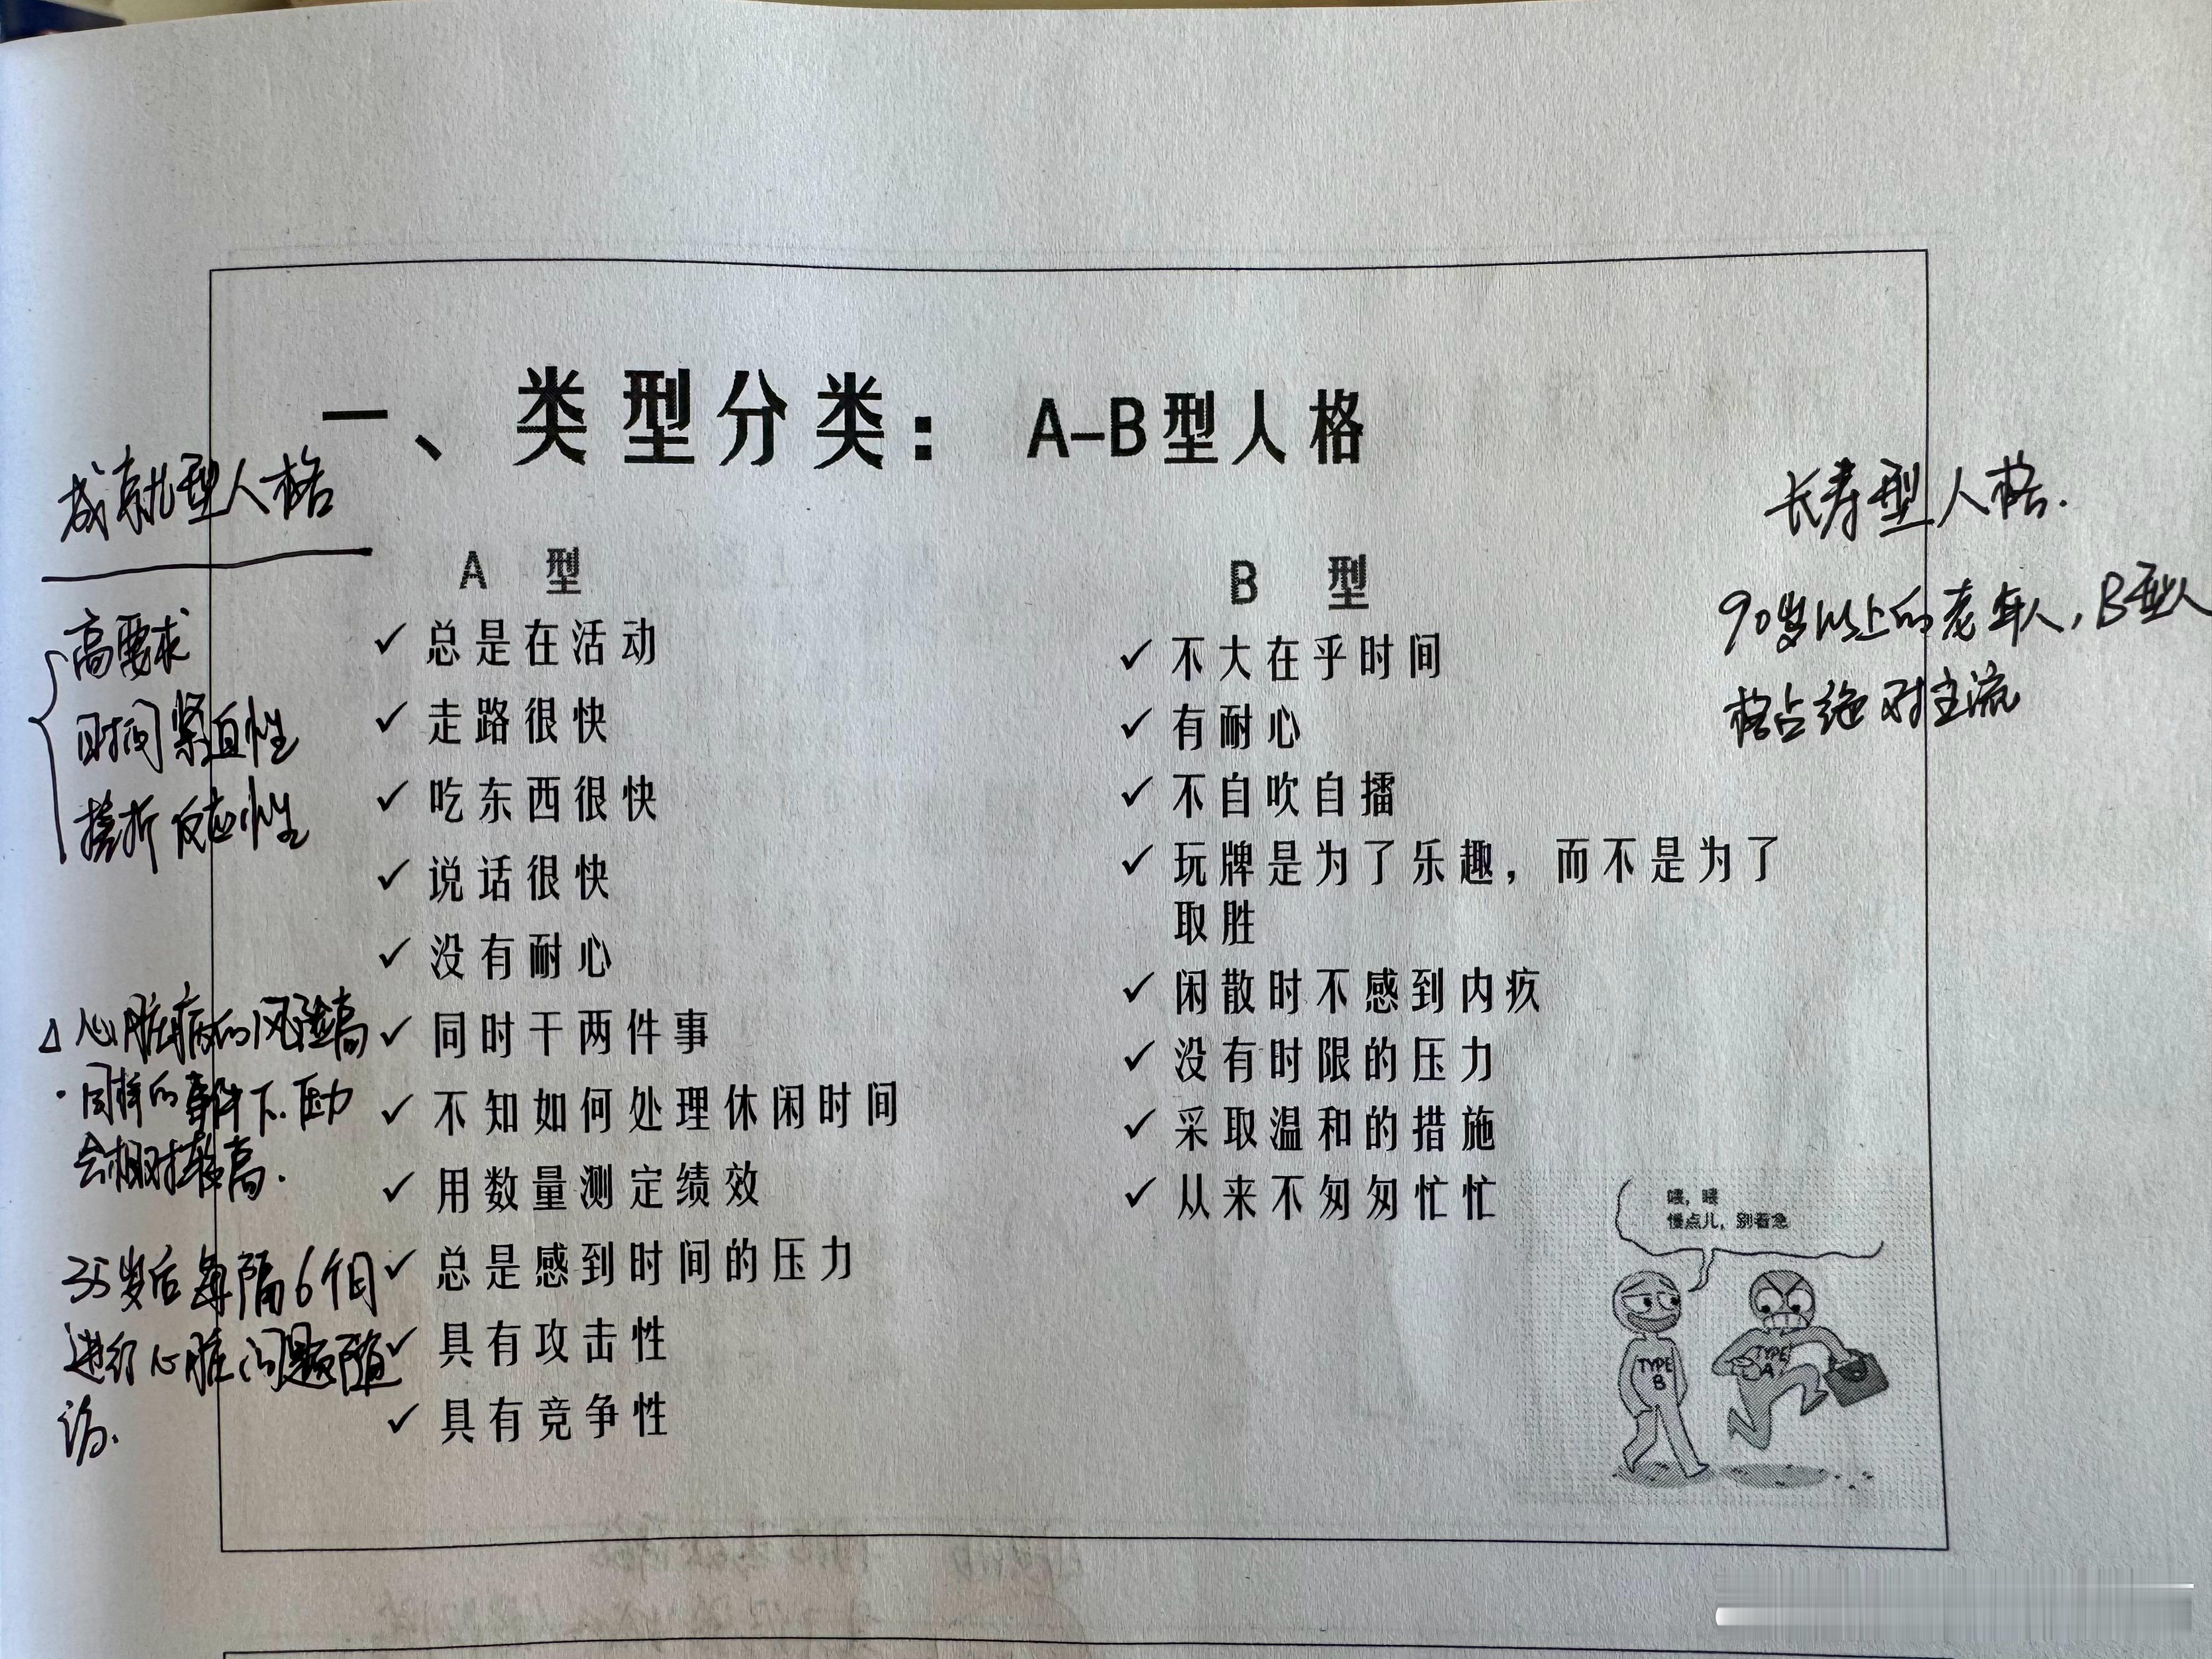 一、类型分类： A-B型人格
成就型人格
高要求
时间紧迫性
挫折反应性
心脏病的风险高
·同样的事件下.压力
会相对较高.
35岁后每隔6个月
进行心脏问题随
访.
A 型
✓ 总是在活动
✓ 走路很快
✓ 吃东西很快
✓ 说话很快
✓ 没有耐心
✓ 同时干两件事
✓ 不知如何处理休闲时间
✓ 用数量测定绩效
✓ 总是感到时间的压力
✓ 具有攻击性
✓ 具有竞争性
B 型
✓ 不大在乎时间
✓ 有耐心
✓ 不自吹自擂
✓ 玩牌是为了乐趣，而不是为了
取胜
✓ 闲散时不感到内疚
✓ 没有时限的压力
✓ 采取温和的措施
✓ 从来不匆匆忙忙
长寿型人格.
90岁以上的老年人，B型人
格占绝对主流
喂，喂
慢点儿，别着急
TYPE
B
TYPE
A